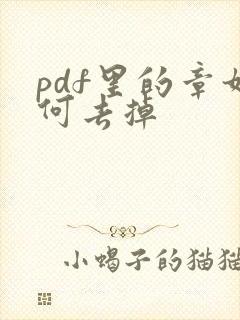 pdf里的章如
何去掉
小蝎子的猫猫